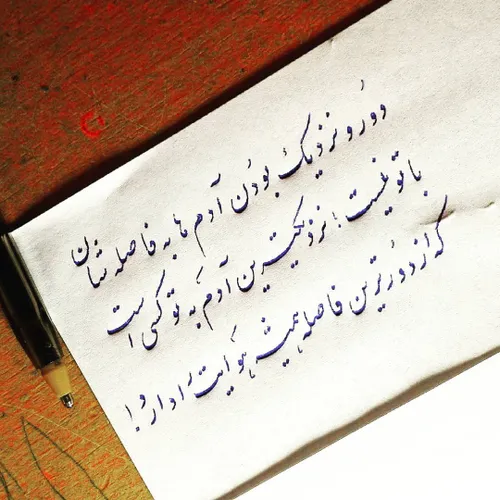 دور و نزدیک بودن آدم ها به فاصله شان
با تو نیست ؛ نزدیکترین آدم به تو کسی است
که از دورترین فاصله همیشه هوایت را دارد !